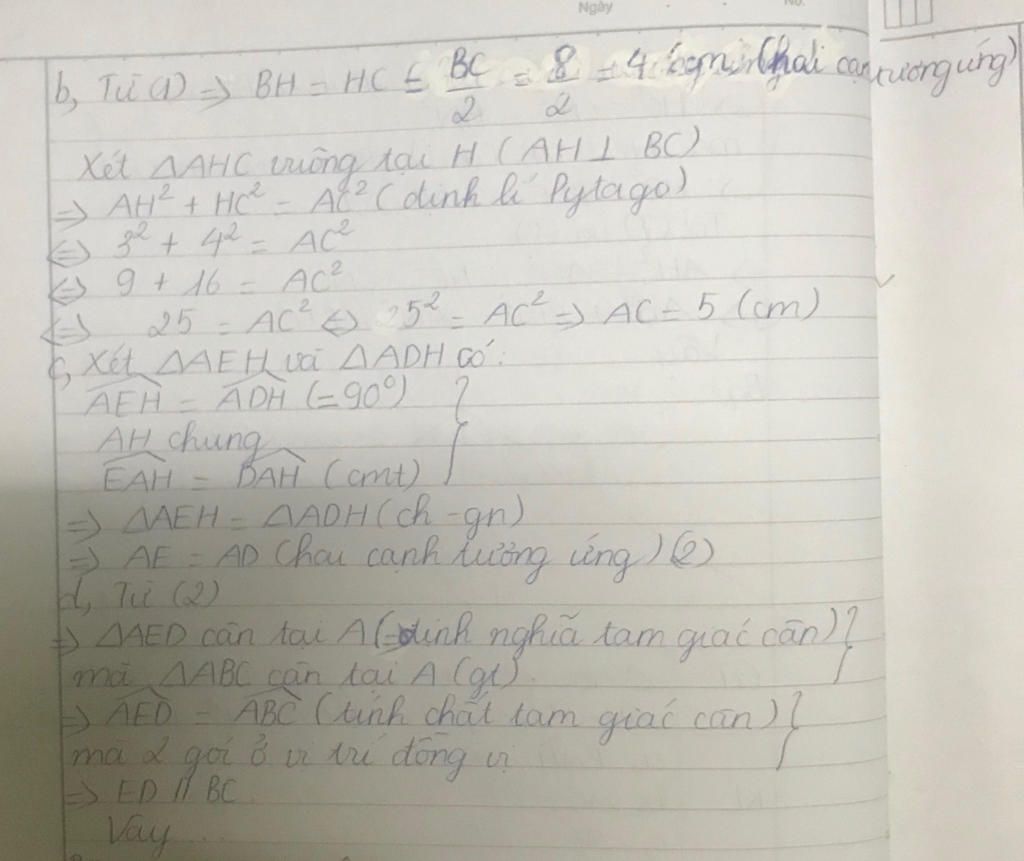 Ngày
No.
b, Từ (1) => BH = HC = BC/2 = 8/2 = 4 (cm) (hai cạnh tương ứng)
Xét ΔAHC vuông tại H (AH ⊥ BC)
=> AH² + HC² = AC² (định lí Pytago)
<=> 3² + 4² = AC²
<=> 9 + 16 = AC²
<=> 25 = AC² <=> 5² = AC² => AC = 5 (cm)
c, Xét ΔAEH và ΔADH có:
AEH = ADH (= 90⁰)
AH chung
EAH = DAH (cmt)
=> ΔAEH = ΔADH (ch - gn)
=> AE = AD (hai cạnh tương ứng) (2)
d, Từ (2)
=> ΔAED cân tại A (định nghĩa tam giác cân)
mà ΔABC cân tại A (gt)
=> AED = ABC (tính chất tam giác cân)
mà 2 gói ở vị trí đồng vị
=> ED // BC
Vậy ...